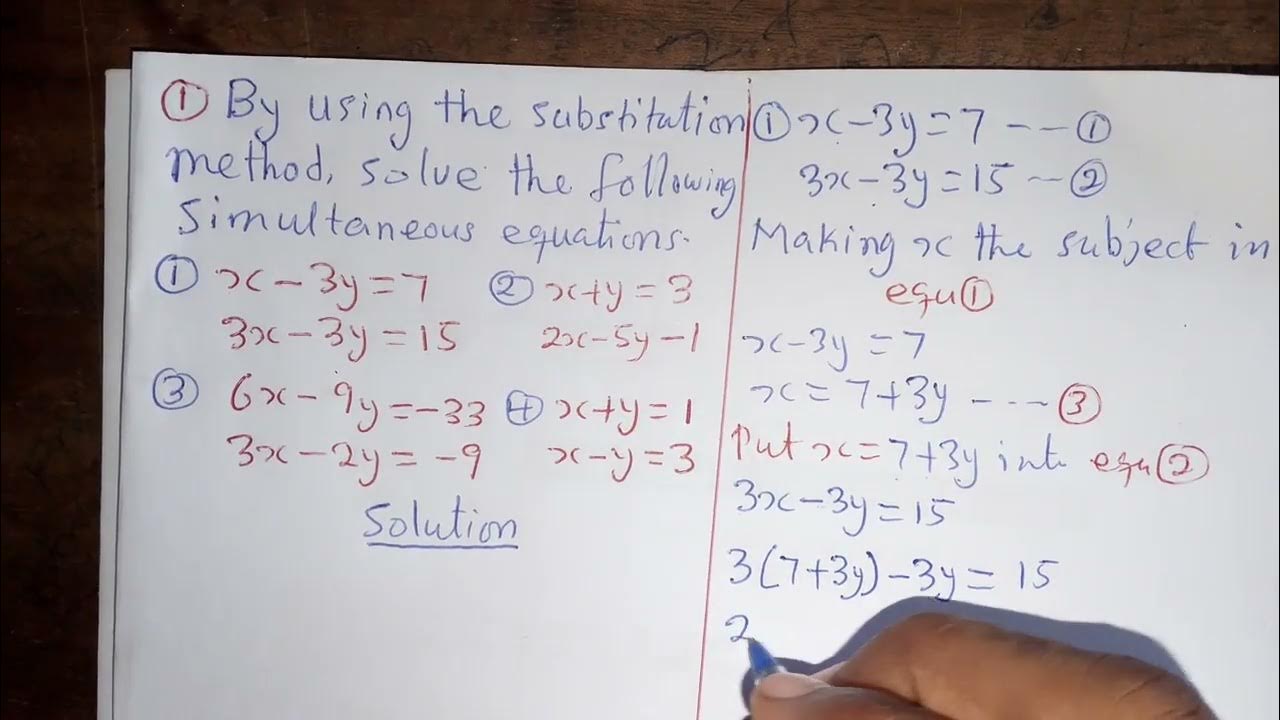 ① By using the substitution
method, solve the following
Simultaneous equations.
① x - 3y = 7 ② x+y = 3
3x - 3y = 15 2x-5y-1
③ 6x - 9y = -33 ④ x+y = 1
3x - 2y = -9 x-y = 3
Solution
① x - 3y = 7 --- ①
3x - 3y = 15 -- ②
Making x the subject in
equ ①
x - 3y = 7
x = 7+3y ---- ③
Put x = 7+3y into equ ②
3x - 3y = 15
3(7+3y) - 3y = 15
2